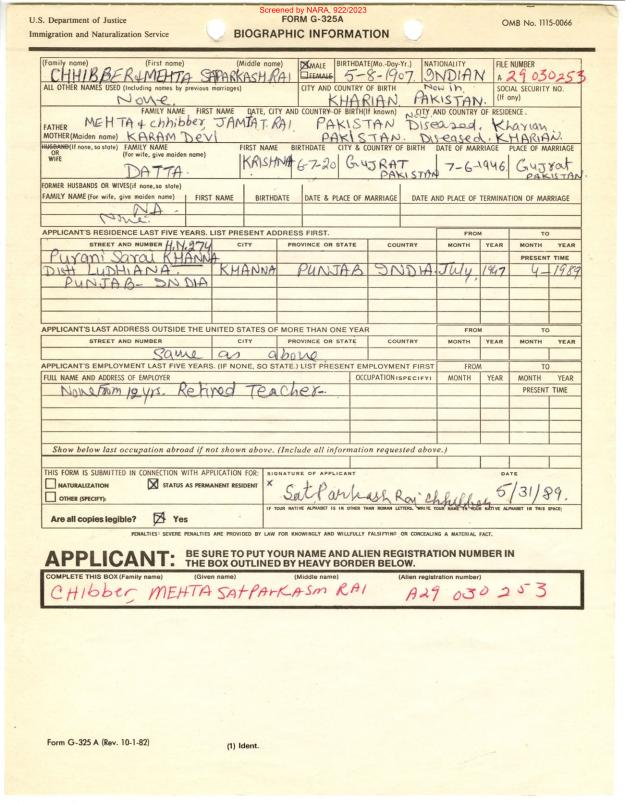 Screened by NARA, 922/2023
U.S. Department of Justice
FORM G-325A
OMB No. 1115-0066
Immigration and Naturalization Service
BIOGRAPHIC INFORMATION
(Family name) (First name) (Middle name) MALE BIRTHDATE(Mo.-Day-Yr.) NATIONALITY FILE NUMBER
CHHIBBER & MEHTA SATPARKASH RAI FEMALE 5-8-1907. INDIAN A 29 030 253
ALL OTHER NAMES USED (Including names by previous marriages) CITY AND COUNTRY OF BIRTH Now in SOCIAL SECURITY NO. (If any)
None. KHARIAN. PAKISTAN.
FAMILY NAME FIRST NAME DATE, CITY AND COUNTRY OF BIRTH(If known) CITY AND COUNTRY OF RESIDENCE.
FATHER MEHTA & chhibber, JAMIAT RAI PAKISTAN Diseased. Kharian
MOTHER(Maiden name) KARAM Devi PAKISTAN. Diseased. KHARIAN.
HUSBAND(If none, so state) OR WIFE FAMILY NAME (For wife, give maiden name) FIRST NAME BIRTHDATE CITY & COUNTRY OF BIRTH DATE OF MARRIAGE PLACE OF MARRIAGE
DATTA. KRISHNA 6-7-20 GUJRAT PAKISTAN 7-6-1946 Gujrat PAKISTAN.
FORMER HUSBANDS OR WIVES(if none,so state)
FAMILY NAME (For wife, give maiden name) FIRST NAME BIRTHDATE DATE & PLACE OF MARRIAGE DATE AND PLACE OF TERMINATION OF MARRIAGE
NA -
None.
APPLICANT'S RESIDENCE LAST FIVE YEARS. LIST PRESENT ADDRESS FIRST. FROM TO
STREET AND NUMBER H.N.274 CITY PROVINCE OR STATE COUNTRY MONTH YEAR MONTH YEAR
Purani Sarai KHANNA PRESENT TIME
Distt LUDHIANA. KHANNA PUNJAB INDIA. July, 1947 4-1989
PUNJAB- INDIA
APPLICANT'S LAST ADDRESS OUTSIDE THE UNITED STATES OF MORE THAN ONE YEAR FROM TO
STREET AND NUMBER CITY PROVINCE OR STATE COUNTRY MONTH YEAR MONTH YEAR
Same as above
APPLICANT'S EMPLOYMENT LAST FIVE YEARS. (IF NONE, SO STATE.) LIST PRESENT EMPLOYMENT FIRST FROM TO
FULL NAME AND ADDRESS OF EMPLOYER OCCUPATION(SPECIFY) MONTH YEAR MONTH YEAR
None From 12 yrs. Retired Teacher- PRESENT TIME
Show below last occupation abroad if not shown above. (Include all information requested above.)
THIS FORM IS SUBMITTED IN CONNECTION WITH APPLICATION FOR: SIGNATURE OF APPLICANT DATE
NATURALIZATION STATUS AS PERMANENT RESIDENT x Sat Parkash Rai Chhibber 5/31/89.
OTHER (SPECIFY):
IF YOUR NATIVE ALPHABET IS IN OTHER THAN ROMAN LETTERS, WRITE YOUR NAME IN YOUR NATIVE ALPHABET IN THIS SPACE)
Are all copies legible? Yes
PENALTIES: SEVERE PENALTIES ARE PROVIDED BY LAW FOR KNOWINGLY AND WILLFULLY FALSIFYING OR CONCEALING A MATERIAL FACT.
APPLICANT: BE SURE TO PUT YOUR NAME AND ALIEN REGISTRATION NUMBER IN
THE BOX OUTLINED BY HEAVY BORDER BELOW.
COMPLETE THIS BOX (Family name) (Given name) (Middle name) (Alien registration number)
CHibber, MEHTA SatParKasm RAI A29 030 253
Form G-325 A (Rev. 10-1-82)
(1) Ident.